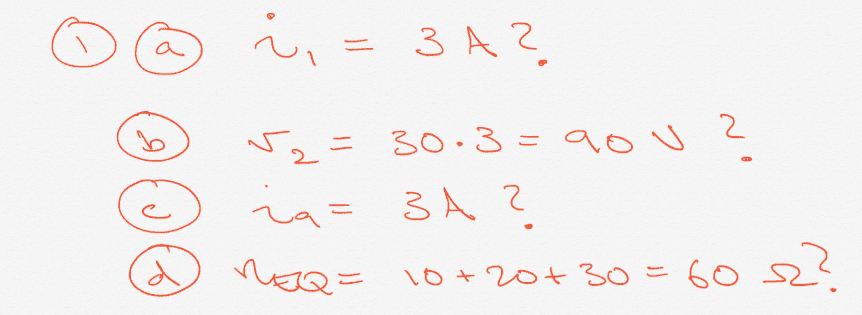 1 a i₁ = 3 A ?
b v₂ = 30 · 3 = 90 V ?
c iₐ = 3 A ?
d r_EQ = 10 + 20 + 30 = 60 Ω ?